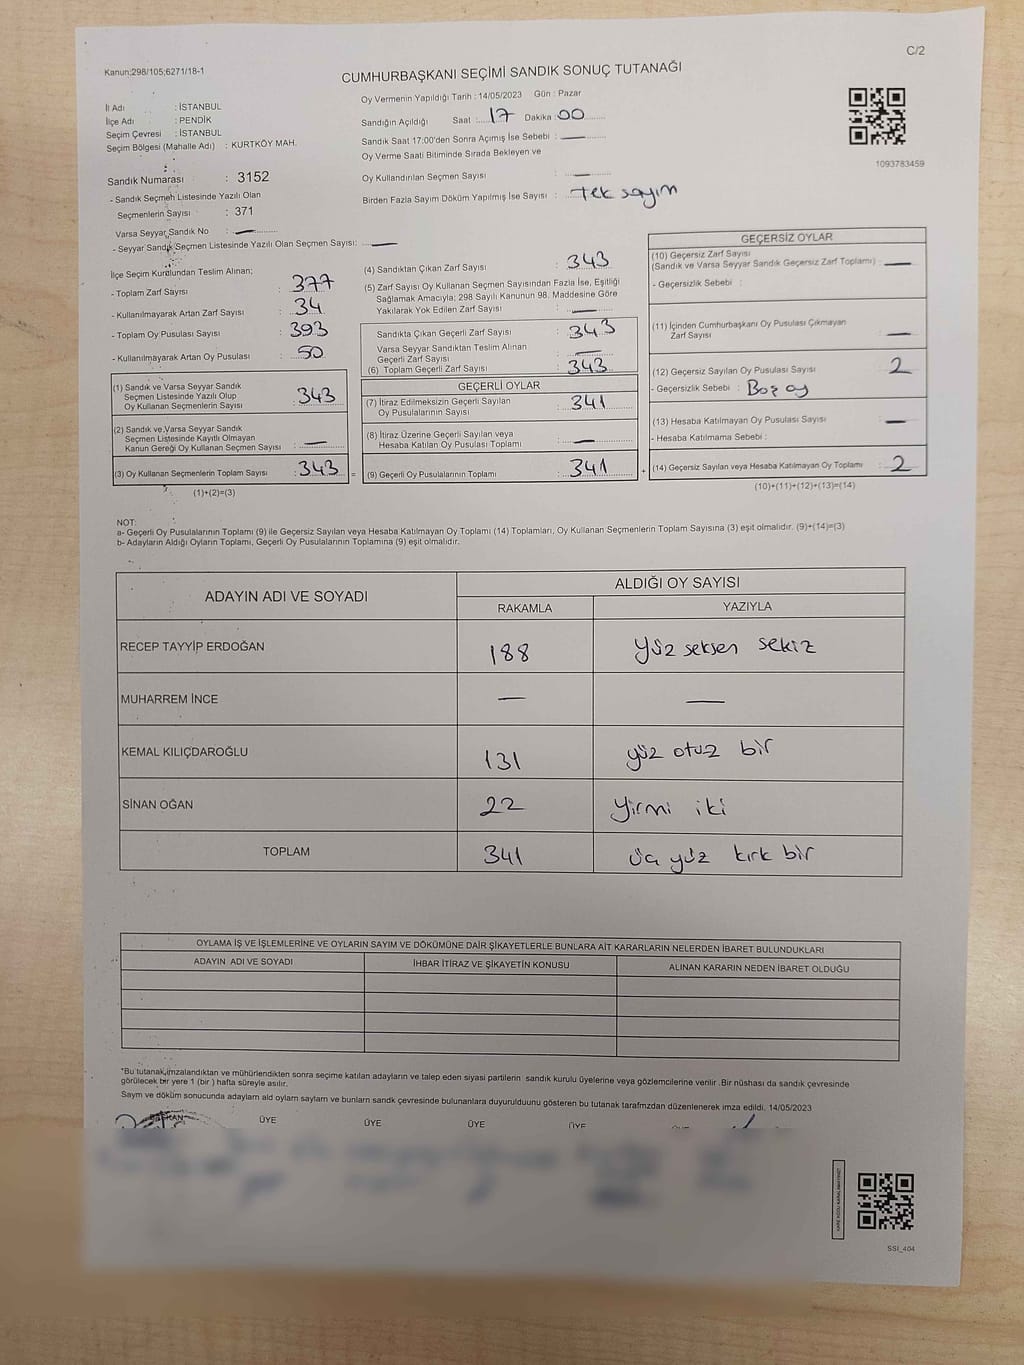 C/2
Kanun;298/105;6271/18-1
CUMHURBAŞKANI SEÇİMİ SANDIK SONUÇ TUTANAĞI
İl Adı : İSTANBUL
İlçe Adı : PENDİK
Seçim Çevresi : İSTANBUL
Seçim Bölgesi (Mahalle Adı) : KURTKÖY MAH.
Oy Vermenin Yapıldığı Tarih : 14/05/2023 Gün : Pazar
Sandığın Açıldığı Saat : 17 Dakika : 00
Sandık Saat 17:00'den Sonra Açımış İse Sebebi : —
Oy Verme Saati Bitiminde Sırada Bekleyen ve
Oy Kullandırılan Seçmen Sayısı : —
Birden Fazla Sayım Döküm Yapılmış İse Sayısı : Tek sayım
1093783459
Sandık Numarası : 3152
- Sandık Seçmen Listesinde Yazılı Olan
Seçmenlerin Sayısı : 371
Varsa Seyyar Sandık No : —
- Seyyar Sandık Seçmen Listesinde Yazılı Olan Seçmen Sayısı: —
İlçe Seçim Kurulundan Teslim Alınan;
- Toplam Zarf Sayısı : 377
- Kullanılmayarak Artan Zarf Sayısı : 34
- Toplam Oy Pusulası Sayısı : 393
- Kullanılmayarak Artan Oy Pusulası : 50
(1) Sandık ve Varsa Seyyar Sandık
Seçmen Listesinde Yazılı Olup
Oy Kullanan Seçmenlerin Sayısı : 343
(2) Sandık ve Varsa Seyyar Sandık
Seçmen Listesinde Kayıtlı Olmayan
Kanun Gereği Oy Kullanan Seçmen Sayısı : —
(3) Oy Kullanan Seçmenlerin Toplam Sayısı : 343 =
(1)+(2)=(3)
(4) Sandıktan Çıkan Zarf Sayısı : 343
(5) Zarf Sayısı Oy Kullanan Seçmen Sayısından Fazla İse, Eşitliği
Sağlamak Amacıyla; 298 Sayılı Kanunun 98. Maddesine Göre
Yakılarak Yok Edilen Zarf Sayısı : —
Sandıkta Çıkan Geçerli Zarf Sayısı : 343
Varsa Seyyar Sandıktan Teslim Alınan
Geçerli Zarf Sayısı : —
(6) Toplam Geçerli Zarf Sayısı : 343
GEÇERLİ OYLAR
(7) İtiraz Edilmeksizin Geçerli Sayılan
Oy Pusulalarının Sayısı : 341
(8) İtiraz Üzerine Geçerli Sayılan veya
Hesaba Katılan Oy Pusulası Toplamı : —
(9) Geçerli Oy Pusulalarının Toplamı : 341 +
GEÇERSİZ OYLAR
(10) Geçersiz Zarf Sayısı
(Sandık ve Varsa Seyyar Sandık Geçersiz Zarf Toplamı) : —
- Geçersizlik Sebebi :
(11) İçinden Cumhurbaşkanı Oy Pusulası Çıkmayan
Zarf Sayısı : —
(12) Geçersiz Sayılan Oy Pusulası Sayısı : 2
- Geçersizlik Sebebi : Boş oy
(13) Hesaba Katılmayan Oy Pusulası Sayısı : —
- Hesaba Katılmama Sebebi :
(14) Geçersiz Sayılan veya Hesaba Katılmayan Oy Toplamı : 2
(10)+(11)+(12)+(13)=(14)
NOT:
a- Geçerli Oy Pusulalarının Toplamı (9) ile Geçersiz Sayılan veya Hesaba Katılmayan Oy Toplamı (14) Toplamları, Oy Kullanan Seçmenlerin Toplam Sayısına (3) eşit olmalıdır. (9)+(14)=(3)
b- Adayların Aldığı Oyların Toplamı, Geçerli Oy Pusulalarının Toplamına (9) eşit olmalıdır.
ADAYIN ADI VE SOYADI ALDIĞI OY SAYISI
RAKAMLA YAZIYLA
RECEP TAYYİP ERDOĞAN 188 yüz seksen sekiz
MUHARREM İNCE — —
KEMAL KILIÇDAROĞLU 131 yüz otuz bir
SİNAN OĞAN 22 yirmi iki
TOPLAM 341 üç yüz kırk bir
OYLAMA İŞ VE İŞLEMLERİNE VE OYLARIN SAYIM VE DÖKÜMÜNE DAİR ŞİKAYETLERLE BUNLARA AİT KARARLARIN NELERDEN İBARET BULUNDUKLARI
ADAYIN ADI VE SOYADI İHBAR İTİRAZ VE ŞİKAYETİN KONUSU ALINAN KARARIN NEDEN İBARET OLDUĞU
*Bu tutanak,imzalandıktan ve mühürlendikten sonra seçime katılan adayların ve talep eden siyasi partilerin sandık kurulu üyelerine veya gözlemcilerine verilir .Bir nüshası da sandık çevresinde
görülecek bir yere 1 (bir ) hafta süreyle asılır.
Sayım ve döküm sonucunda adaylarn ald oylarn saylarn ve bunlarn sandk çevresinde bulunanlara duyurulduunu gösteren bu tutanak tarafmzdan düzenlenerek imza edildi. 14/05/2023
BAŞKAN ÜYE ÜYE ÜYE ÜYE
SSI_404